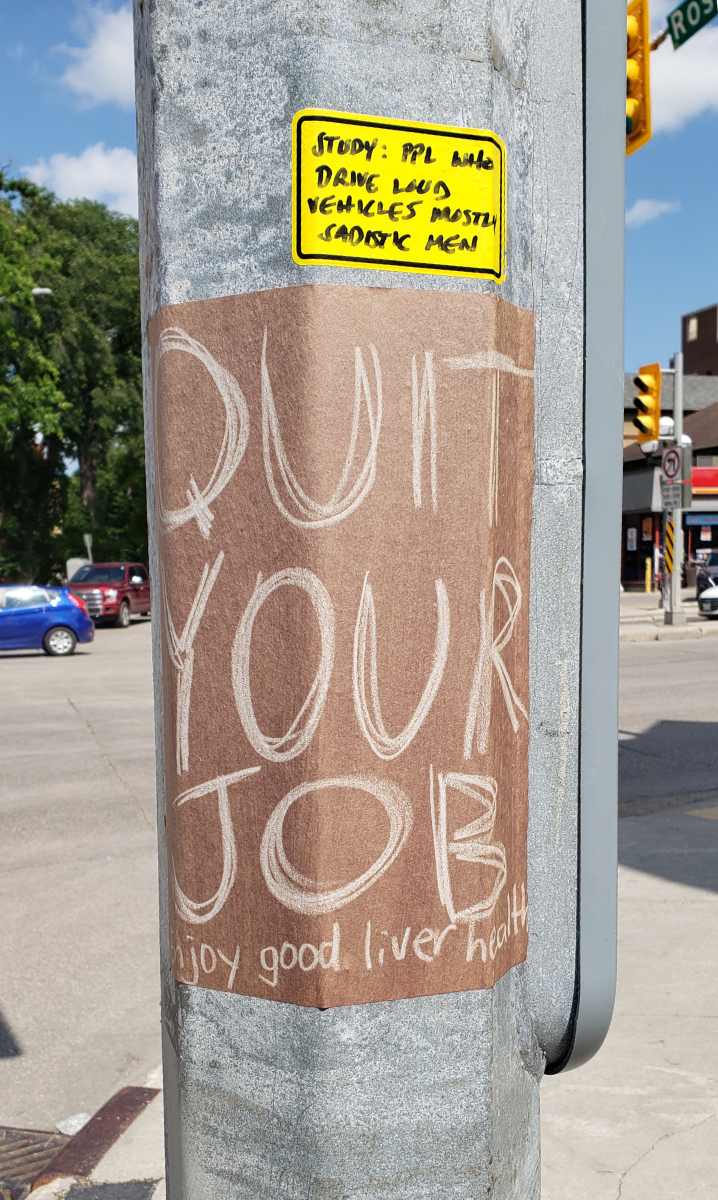 STUDY: PPL WHO
DRIVE LOUD
VEHICLES MOSTLY
SADISTIC MEN
QUIT
YOUR
JOB
njoy good liver health
ROS